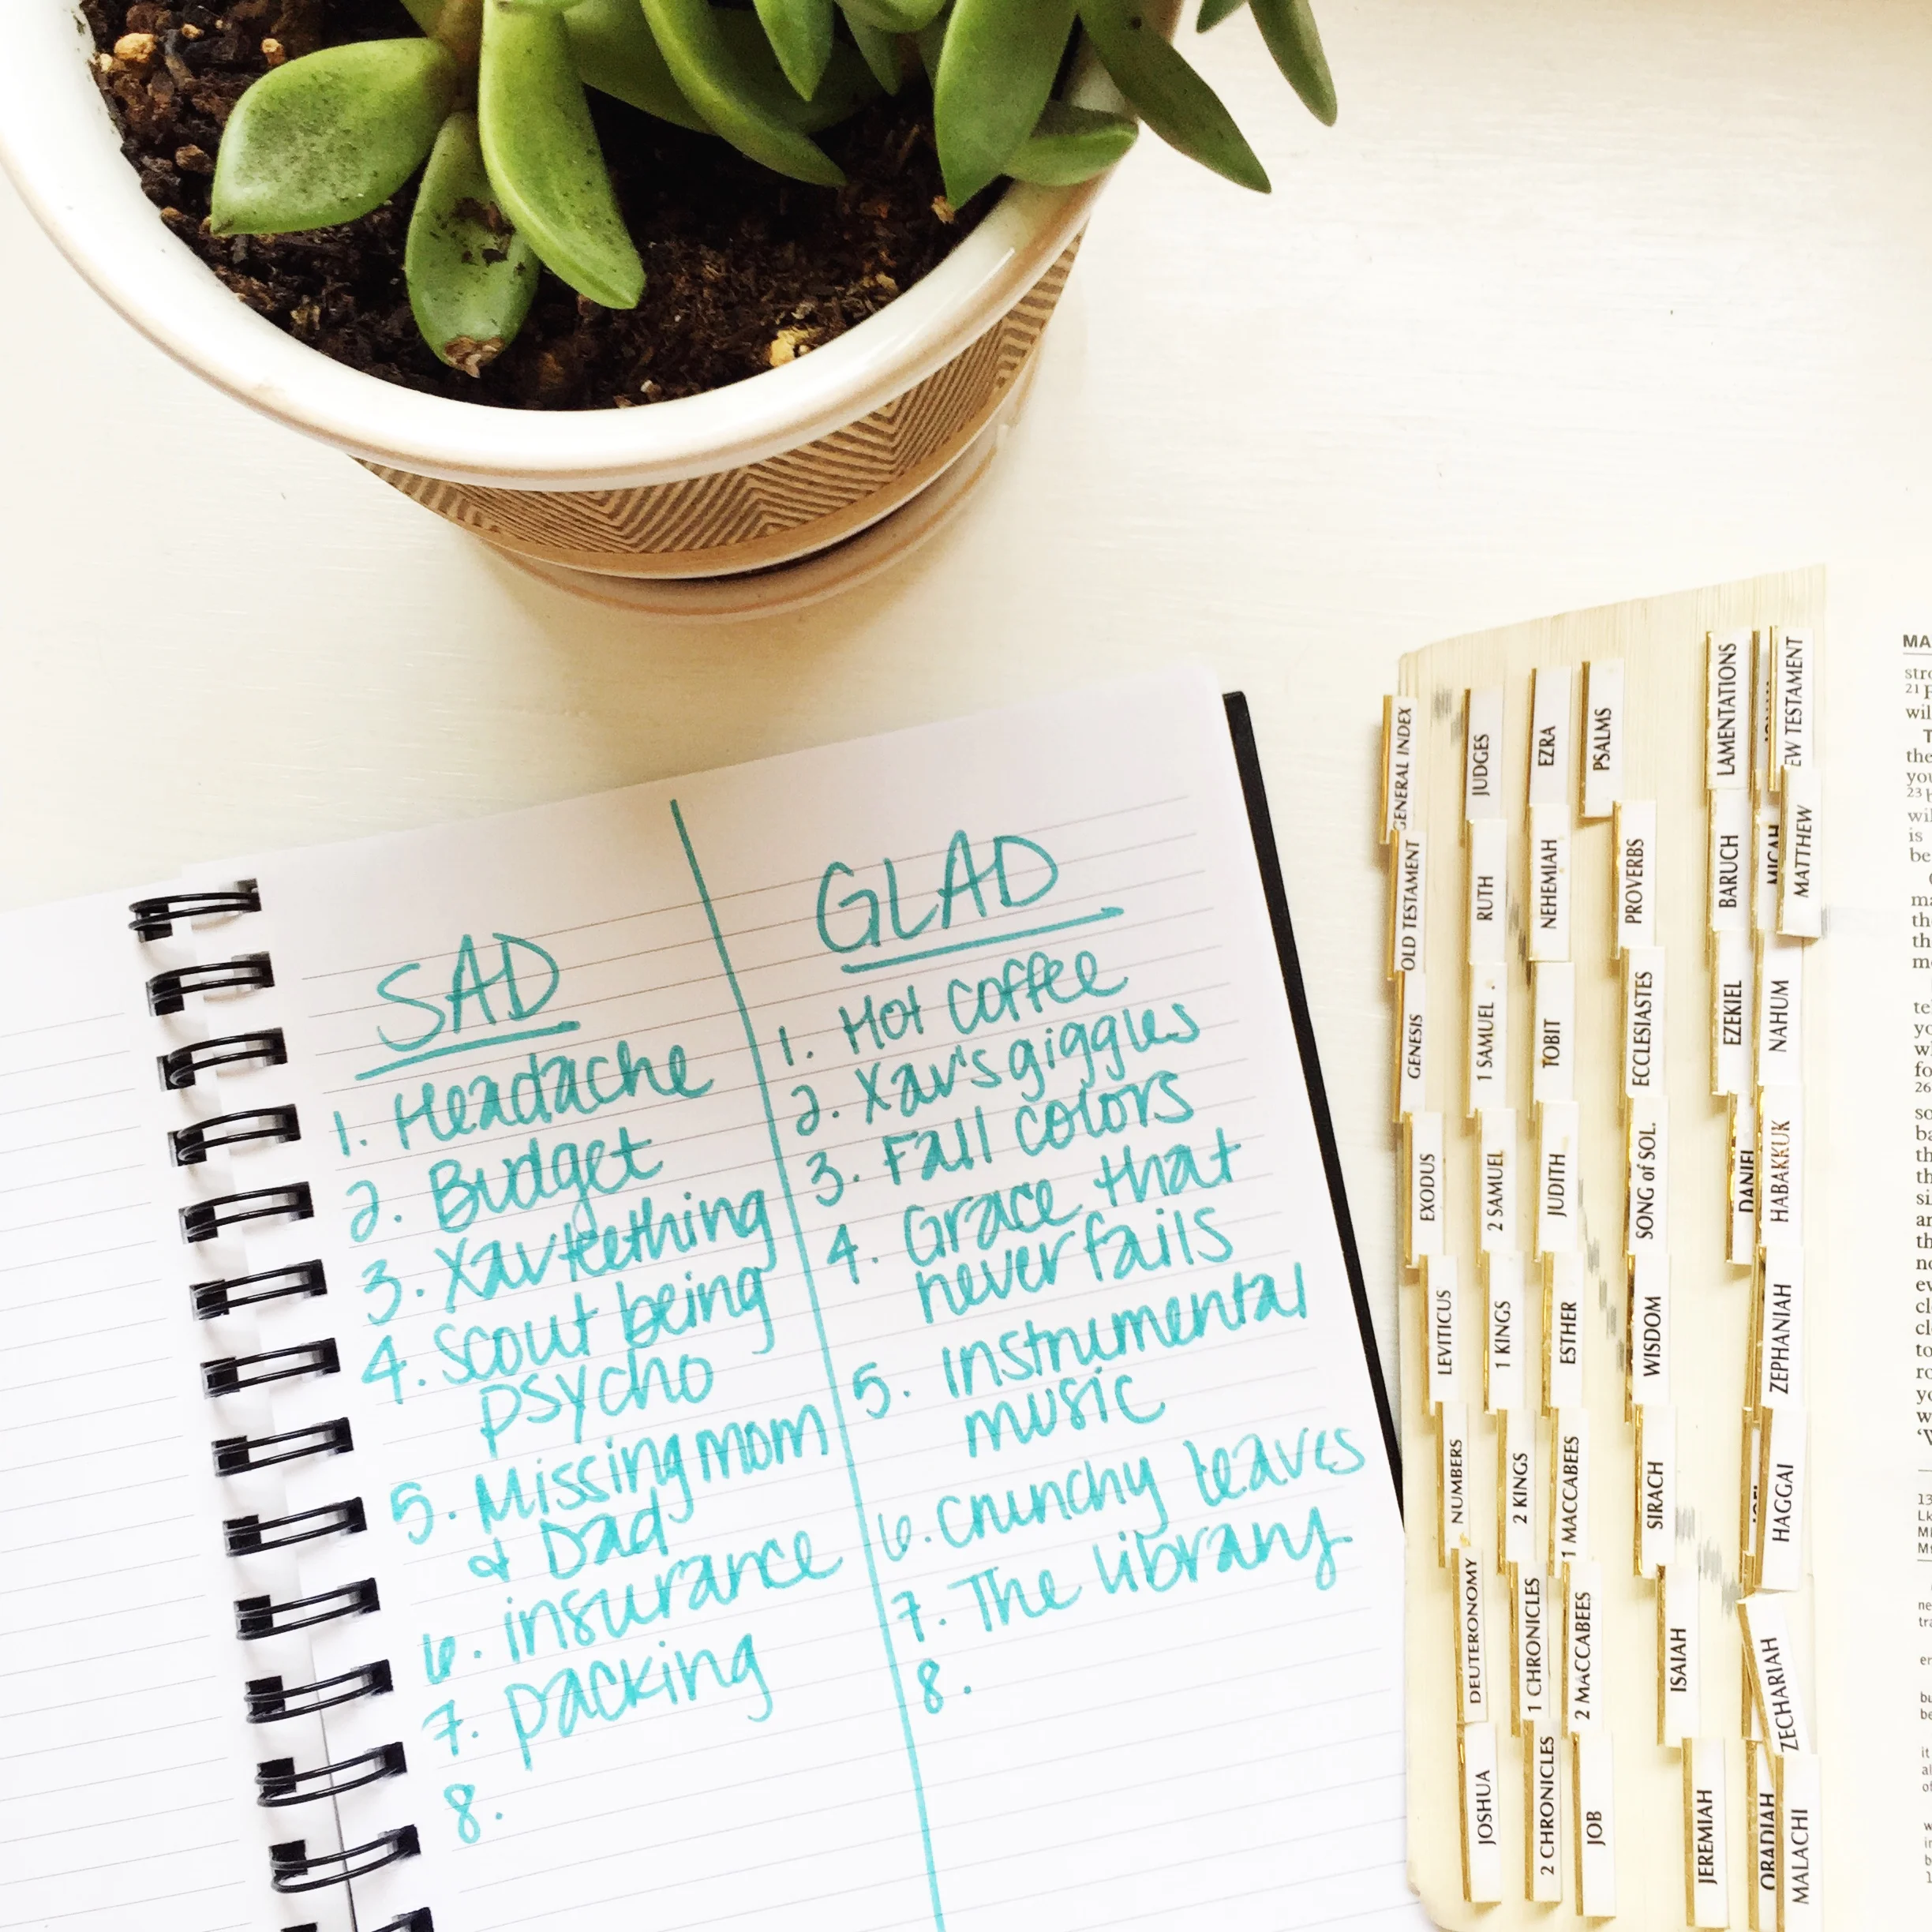 SAD
1. Headache
2. Budget
3. Xav teething
4. Scout being
psycho
5. Missing mom
& Dad
6. insurance
7. packing
8.
GLAD
1. Hot coffee
2. Xav's giggles
3. Fall colors
4. Grace that
never fails
5. instrumental
music
6. Crunchy leaves
7. The library
8.
GENERAL INDEX
OLD TESTAMENT
GENESIS
EXODUS
LEVITICUS
NUMBERS
DEUTERONOMY
JOSHUA
JUDGES
RUTH
1 SAMUEL
2 SAMUEL
1 KINGS
2 KINGS
1 CHRONICLES
2 CHRONICLES
EZRA
NEHEMIAH
TOBIT
JUDITH
ESTHER
1 MACCABEES
2 MACCABEES
JOB
PSALMS
PROVERBS
ECCLESIASTES
SONG of SOL.
WISDOM
SIRACH
ISAIAH
JEREMIAH
LAMENTATIONS
BARUCH
EZEKIEL
DANIEL
OBADIAH
MICAH
EW TESTAMENT
MATTHEW
NAHUM
HABAKKUK
ZEPHANIAH
HAGGAI
ZECHARIAH
MALACHI